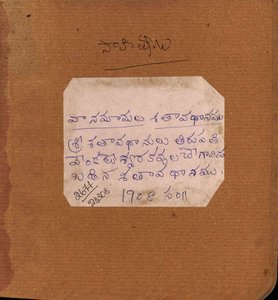 సాహిత్యం
వానమామల శతావధానము
శ్రీ శతావధానులు తిరుపతి
వేంకటేశ్వర కవుల చే గావిం
బడిన శతావధానము.
1908 సం॥